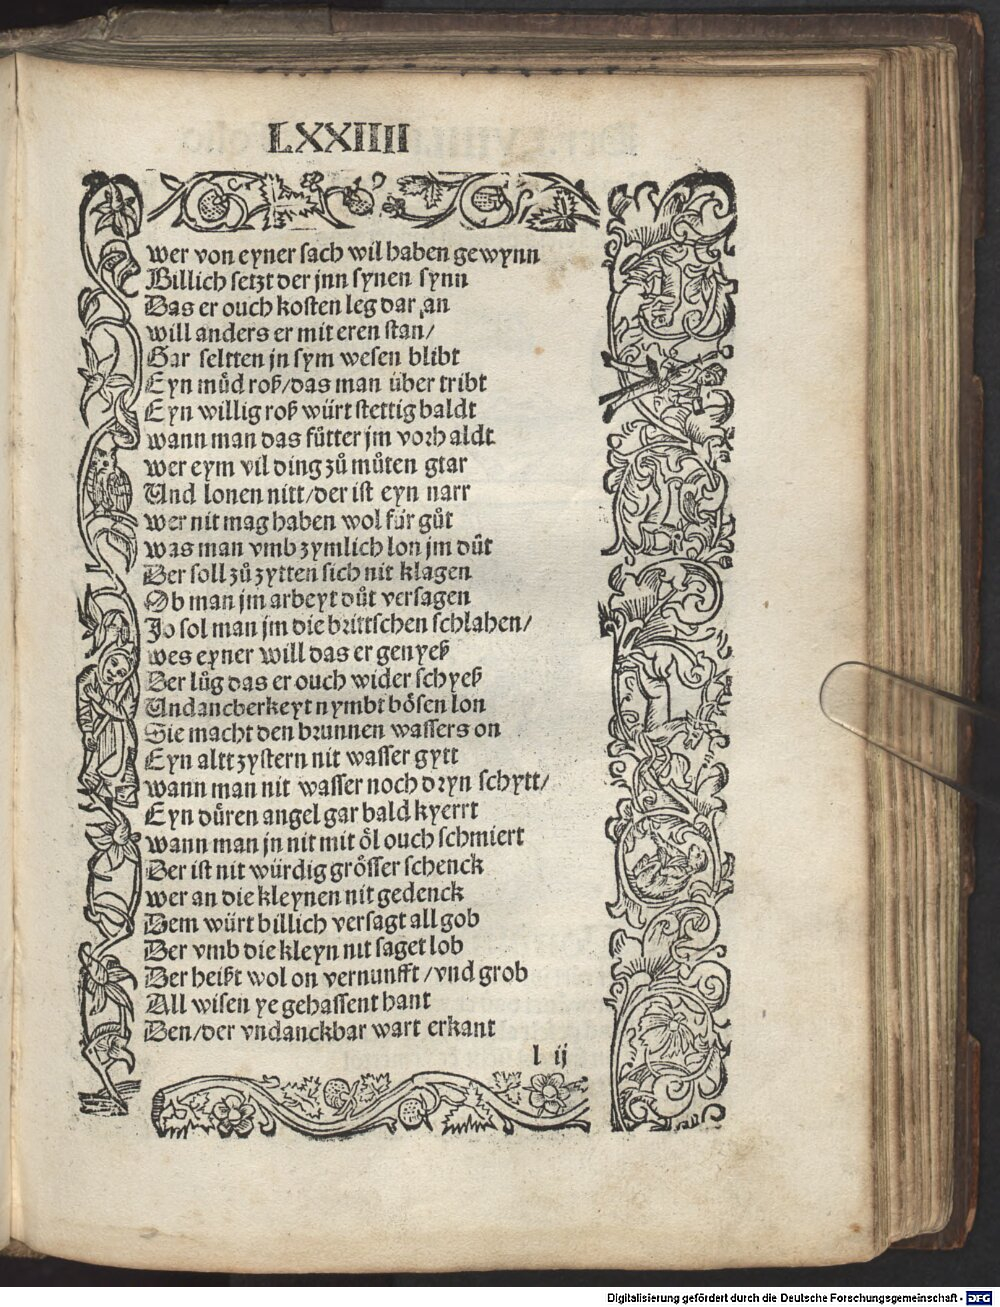 LXXIIII
wer von eyner sach wil haben gewynn
Billich setzt der jnn synen synn
Das er ouch kosten leg dar an
will anders er mit eren stan/
Gar seltten jn sym wesen blibt
Eyn müd roß/das man über tribt
Eyn willig roß würt stettig baldt
wann man das fůtter jm vorhaldt
wer eym vil ding zů můten gtar
Und lonen nitt/der ist eyn narr
wer nit mag haben wol für gůt
was man vmb zymlich lon jm důt
Der soll zů zytten sich nit klagen
Ob man jm arbeyt důt versagen
Jo sol man jm die brittschen schlahen/
wes eyner will das er genyeß
Der lůg das er ouch wider schyeß
Undancberkeyt nymbt bösen lon
Sie macht den brunnen wassers on
Eyn altt zystern nit wasser gytt
wann man nit wasser noch dryn schytt/
Eyn düren angel gar bald kyerrt
wann man jn nit mit öl ouch schmiert
Der ist nit würdig grösser schenck
wer an die kleynen nit gedenck
Dem würt billich versagt all gob
Der vmb die kleyn nit saget lob
Der heißt wol on vernunfft /vnd grob
All wisen ye gehassent hant
Den/der vndanckbar wart erkant
l ij
Digitalisierung gefördert durch die Deutsche Forschungsgemeinschaft - DFG